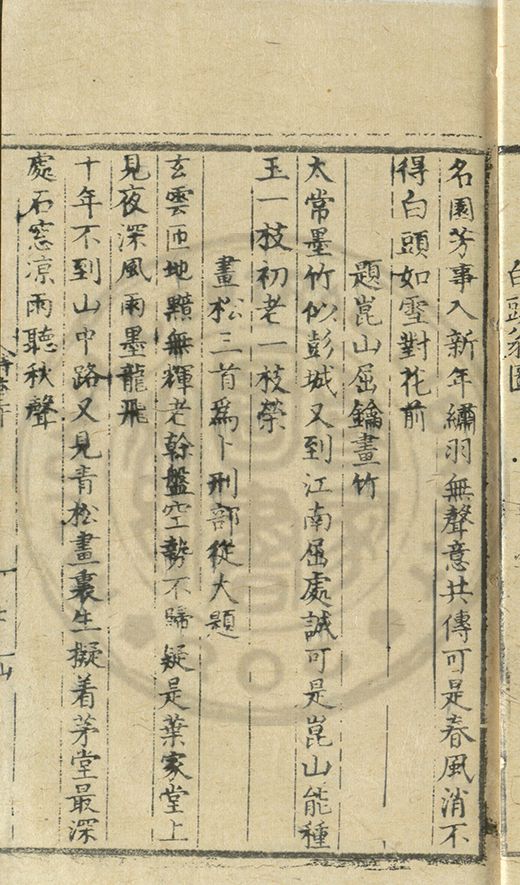 名園芳事入新年繡羽無聲意共傳可是春風消不
得白頭如雪對花前
題崑山屈鑰畫竹
太常墨竹似彭城又到江南屈處誠可是崑山能種
玉一枝初老一枝榮
畫松三首爲卜刑部從大題
玄雲匝地黯無輝老幹盤空勢不歸疑是葉家堂上
見夜深風雨墨龍飛
十年不到山中路又見青松畫裏生擬着茅堂最深
處石窓凉雨聽秋聲